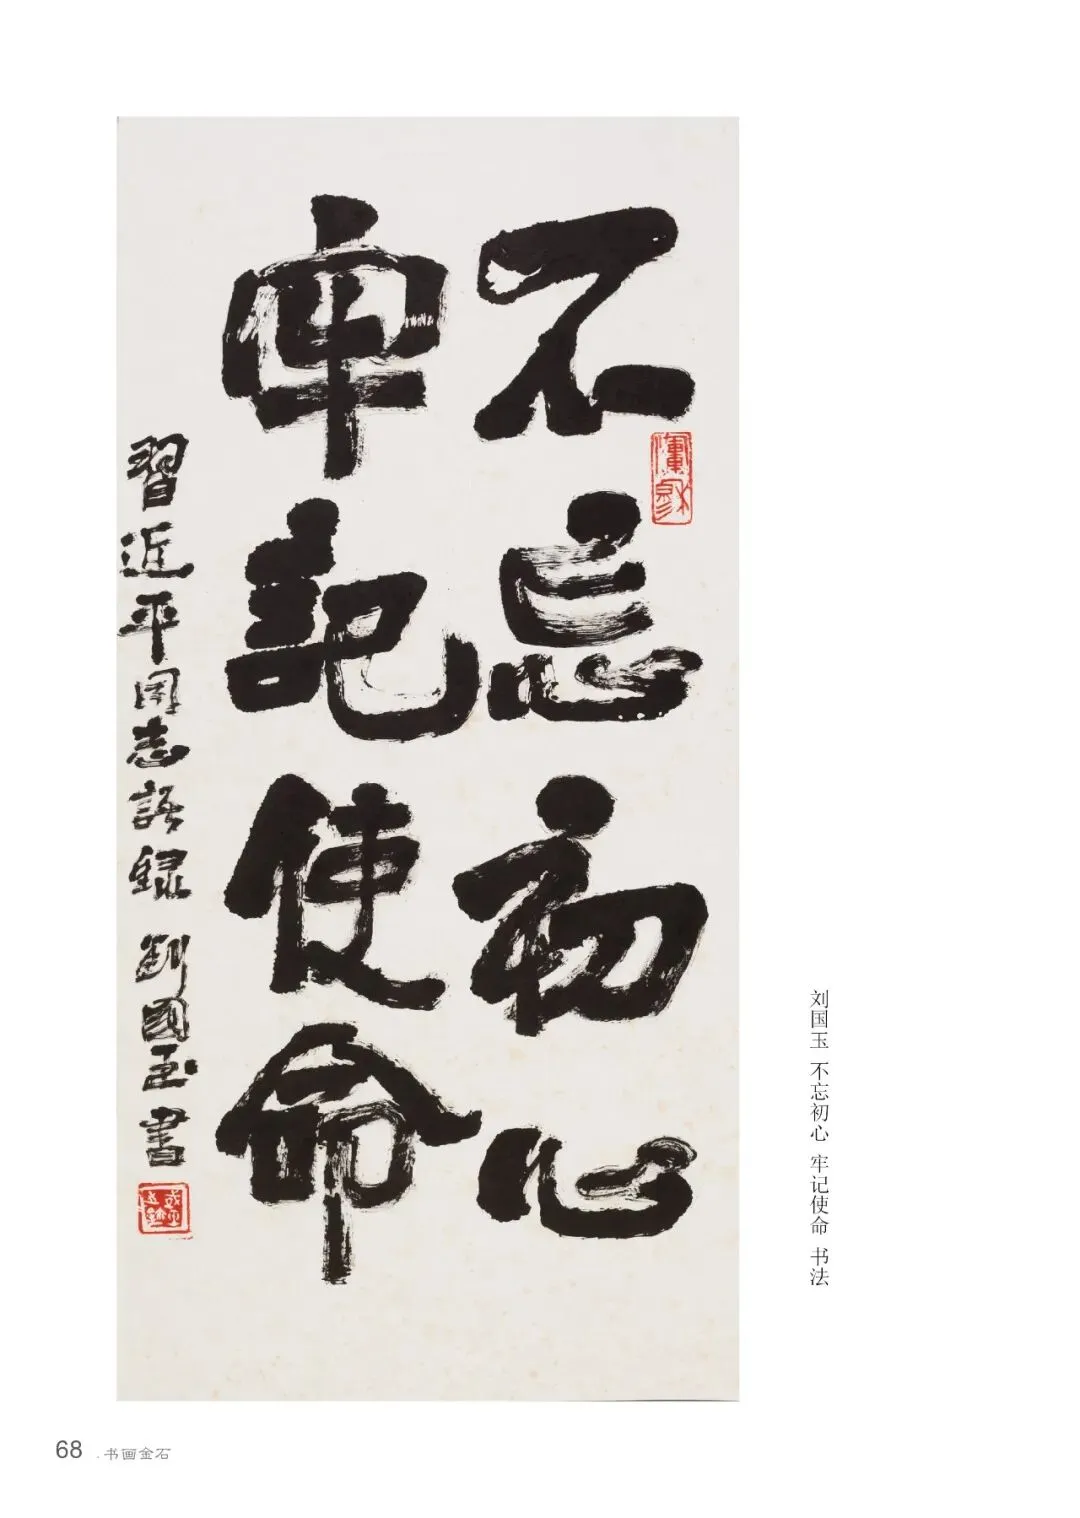 不忘初心
牢記使命
習近平同志語録 劉國玉書
刘国玉 不忘初心 牢记使命 书法
68 .书画金石